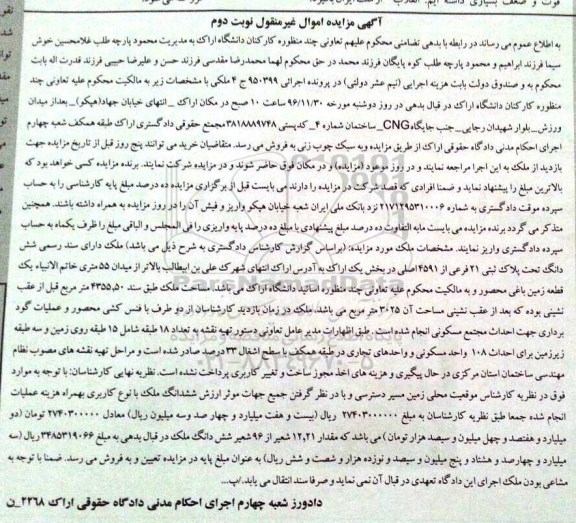 آگهی مزایده اموال غیرمنقول نوبت دوم
به اطلاع عموم می رساند در رابطه با بدهی تضامنی محکوم علیهم تعاونی چند منظوره کارکنان دانشگاه اراک به مدیریت محمود پارچه طلب غلامحسین خوش
سیما فرزند ابراهیم و محمود پارچه طلب کوه پایگان فرزند محمد در حق محکوم لهما محمدرضا مقدسی فرزند حسن و علیرضا حبیبی فرزند قدرت اله بابت
محکوم به و صندوق دولت بابت هزینه اجرایی (نیم عشر دولتی) در پرونده اجرائی ۹۵۰۳۹۹ ج ۴ ملکی با مشخصات زیر به مالکیت محکوم علیه تعاونی چند
منظوره کارکنان دانشگاه اراک در قبال بدهی در روز دوشنبه مورخه ۹۶/۱۱/۳۰ ساعت ۱۰ صبح در مکان اراک _ انتهای خیابان جهاد(هپکو)_ بعداز میدان
ورزش_ بلوار شهیدان رجایی_ جنب جایگاه CNG_ ساختمان شماره ۴_ کدپستی ۳۸۱۸۸۸۹۷۴۸ مجتمع حقوقی دادگستری اراک طبقه همکف شعبه چهارم
اجرای احکام مدنی دادگاه حقوقی اراک از طریق مزایده وبه سبک چوب زنی به فروش می رسد. متقاضیان خرید می توانند پنج روز قبل از تاریخ مزایده جهت
بازدید از ملک به این اجرا مراجعه نمایند و در روز موعود (مزایده) و در مکان فوق حاضر شوند و در مزایده شرکت نمایند. برنده مزایده کسی خواهد بود که
بالاترین مبلغ را پیشنهاد نماید و ضمنا افرادی که قصد شرکت در مزایده را دارند می بایست قبل از برگزاری مزایده ده درصد مبلغ پایه کارشناسی را به حساب
سپرده موقت دادگستری به شماره ۲۱۷۱۲۹۵۳۱۰۰۰۶ نزد بانک ملی ایران شعبه خیابان هپکو واریز و فیش آن را در روز مزایده به همراه داشته باشند. همچنین
متذکر می گردد برنده مزایده می بایست مابه التفاوت ده درصد مبلغ پیشنهادی با مبلغ ده درصد پایه واریزی را فی المجلس و الباقی مبلغ را ظرف یکماه به حساب
سپرده دادگستری واریز نمایند. مشخصات ملک مورد مزایده: (براساس گزارش کارشناس دادگستری به شرح ذیل می باشد) ملک دارای سند رسمی شش
دانگ تحت پلاک ثبتی ۲۱ فرعی از ۴۵۹۱ اصلی در بخش یک اراک به آدرس اراک انتهای شهرک علی بن ابیطالب بالاتر از میدان ۵۵ متری خاتم الانبیاء یک
قطعه زمین باغی محصور و به مالکیت محکوم علیه تعاونی چند منظوره اساتید دانشگاه اراک می باشد. مساحت ملک طبق سند ۴۳۵۵,۵۰ متر مربع قبل از عقب
نشینی بوده که بعد از عقب نشینی مساحت آن ۳۰۲۵ متر مربع می باشد. ملک در زمان بازدید کارشناسان از دو طرف با فنس کشی محصور و عملیات گود
برداری جهت احداث مجتمع مسکونی انجام شده است . طبق اظهارات مدیر عامل تعاونی دستور تهیه نقشه به تعداد ۱۸ طبقه شامل ۱۵ طبقه روی زمین و سه طبقه
زیرزمین برای احداث ۱۰۸ واحد مسکونی و واحدهای تجاری در طبقه همکف با سطح اشغال ۳۳ درصد صادر شده است و مراحل تهیه نقشه های مصوب نظام
مهندسی ساختمان استان مرکزی در حال پیگیری و هزینه های اخذ مجوز ساخت و تغییر کاربری پرداخت نشده است. نظریه نهایی کارشناسان: با توجه به موارد
فوق در نظریه کارشناس موقعیت محلی زمین مسیر دسترسی و با در نظر گرفتن جمیع جهات موثر ارزش ششدانگ ملک با نوع کاربری بهمراه هزینه عملیات
انجام شده جمعا طبق نظریه کارشناسان به مبلغ ۲۷۴۰۳۰۰۰۰۰۰ ریال (بیست و هفت میلیارد و چهار صد و سه میلیون ریال) معادل ۲۷۴۰۳۰۰۰۰۰ تومان (دو
میلیارد و هفتصد و چهل میلیون و سیصد هزار تومان ) می باشد که مقدار ۱۲,۲۱ شعیر از ۹۶ شعیر شش دانگ ملک در قبال بدهی به مبلغ ۳۴۸۵۳۱۹۰۶۶ ریال (سه
میلیارد و چهارصد و هشتاد و پنج میلیون و سیصد و نوزده هزار و شصت و شش ریال) به عنوان مبلغ پایه در مزایده تعیین و به فروش می رسد. ضمنا با توجه به
مشاعی بودن ملک اجرای این دادگاه تعهدی در قبال آن نمی نماید و صرفا سند انتقال می یابد./پ...
دادورز شعبه چهارم اجرای احکام مدنی دادگاه حقوقی اراک ۲۲۶۸_ن